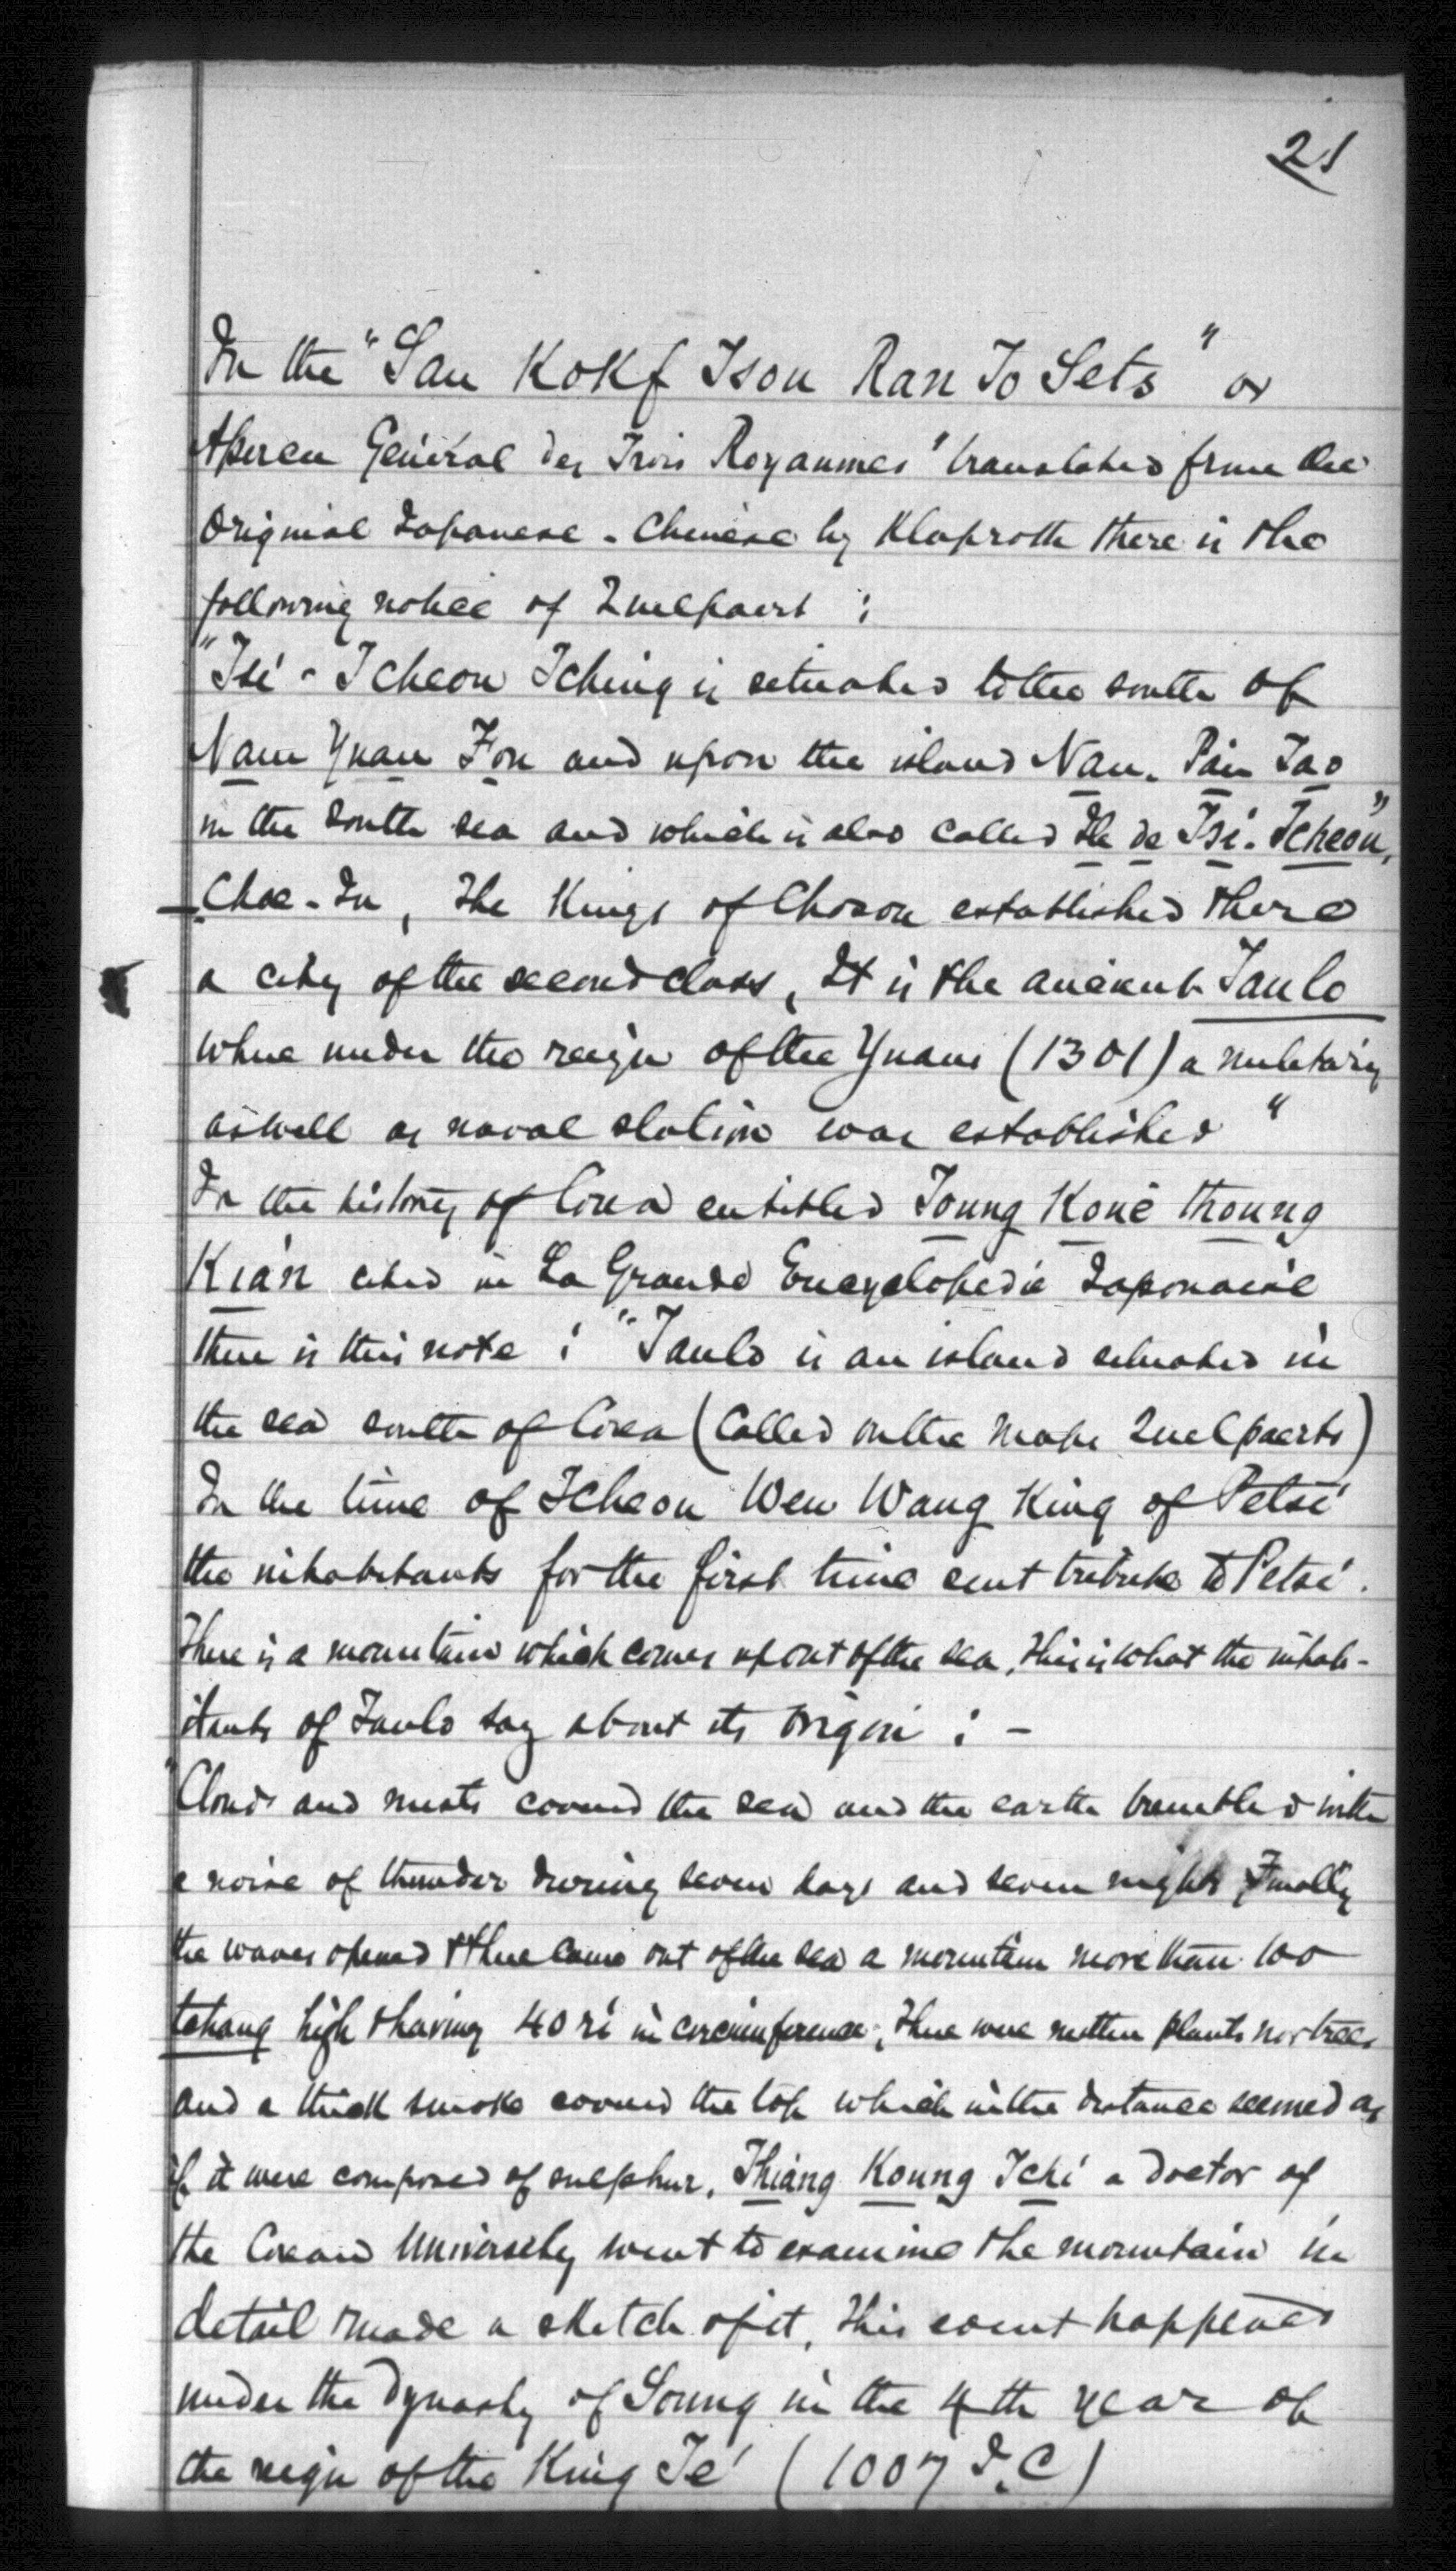 21
In the "San Kokf Tsou Ran To Sets" or
Aperçu Général des Trois Royaumes" translated from the
original Japanese - Chinese by Klaproth there is the
following notice of Quelpaert :
"Tsi - Tcheou Tching is situated to the south of
Nam Yuan Fou and upon the island Nan. Pai Tao
in the south sea and which is also called Ile de Tsi. Tcheou",
Chae - In, The Kings of Chosen established there
a city of the second class, It is the ancient Tanlo
where under the reign of the Yuans (1301) a military
as well as naval station was established "
In the history of Corea entitled Toung Koué Thoung
Kian cited in La Grande Encyclopedie Japonaise
there is this note : "Tanlo is an island situated in
the sea south of Corea (Called on the maps Quelpaerts)
In the time of Tcheou Wen Wang King of Petsi
the inhabitants for the first time sent tribute to Petsi.
There is a mountain which comes up out of the sea, this is what the inhab-
itants of Tanlo say about its origin : -
"Clouds and mists covered the sea and the earth trembled with
a noise of thunder during seven days and seven nights Finally
the waves opened & there came out of the sea a mountain more than 100
tchang high & having 40 ri in circumference, there were neither plants nor trees
and a thick smoke covered the top which in the distance seemed as
if it were composed of sulphur. Thiang Koung Tchi a doctor of
the Corean University went to examine the mountain in
detail & made a sketch of it, this event happened
under the dynasty of Soung in the 4th year of
the reign of the King Te (1007 J.C)